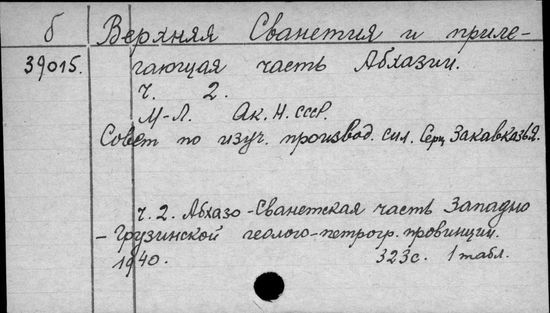 б Верхняя Сванетия и приле-
39015. гающая часть Абхазии.
ч. 2.
М-Л. Ак. Н. СССР.
Совет по изуч. производ. сил. Серц Закавказья.
ч. 2. Абхазо-Сванетская часть Западно
- Грузинской геолого-петрогр. провинции.
1940. 323с. 1 табл.